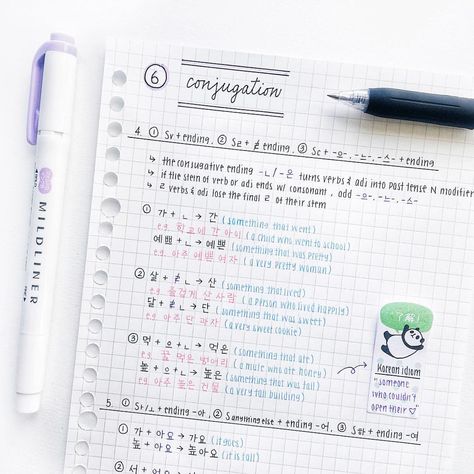 MILDLINER
6 conjugation
4. ① Sv + ending, ② Sㄹ + ㄹ̸ ending, ③ Sc + -으-, -느-, -스- + ending
↳ the conjugative ending -ㄴ/-은 turns verbs & adj into past tense N modifier
↳ if the stem of verb or adj ends w/ consonant, add -으-, -느-, -스-
↳ ㄹ verbs & adj lose the final ㄹ of their stem
① 가 + ㄴ → 간 (something that went)
e.g. 학교에 간 아이 (a child who went to school)
예쁘 + ㄴ → 예쁜 (something that was pretty)
e.g. 아주 예쁜 여자 (a very pretty woman)
② 살 + ㄹ̸ㄴ → 산 (something that lived)
e.g. 즐겁게 산 사람 (a person who lived happily)
달 + ㄹ̸ㄴ → 단 (something that was sweet)
e.g. 아주 단 과자 (a very sweet cookie)
③ 먹 + 은 → 먹은 (something that ate)
e.g. 꿀 먹은 벙어리 (a mute who ate honey)
높 + 은 → 높은 (something that was tall)
e.g. 아주 높은 건물 (a very tall building)
了解!
Korean idiom
"someone
who couldn't
open their
5. ① Sㅏ/ㅗ + ending -아, ② Sanything else + ending -어, ③ S하 + ending -여
① 가 + 아요 → 가요 (it goes)
높 + 아요 → 높아요 (it is tall)